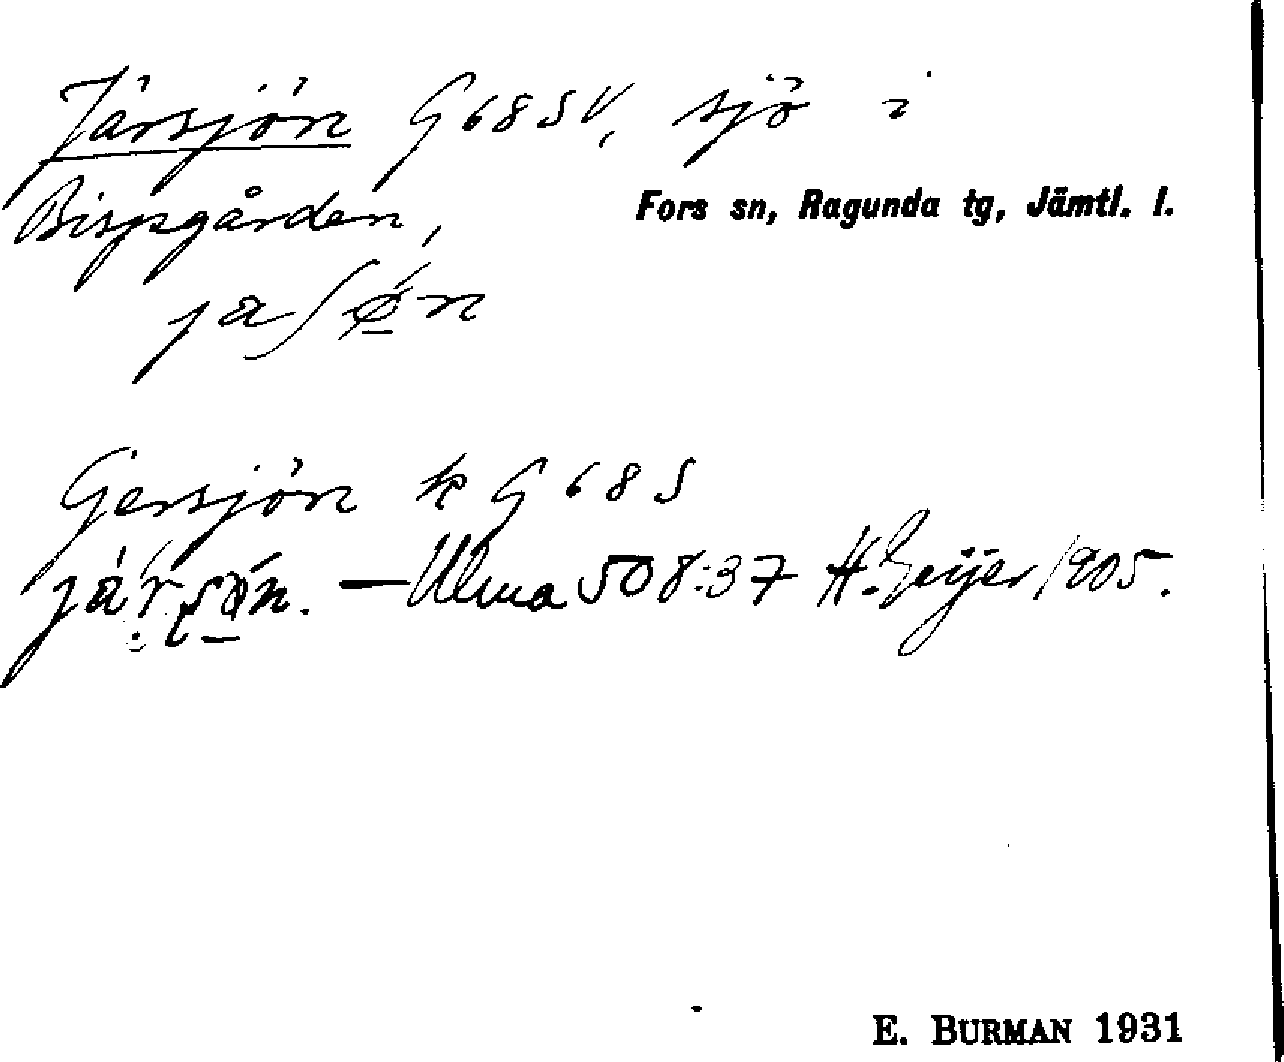 Järsjön G68SV, sjö i
Bispgården,
Fors sn, Ragunda tg, Jämtl. l.
ja ʃǿ̠n
Gersjön k G 68 S
— Ulma 508:37 H. Geijer 1905.
E. BURMAN 1931